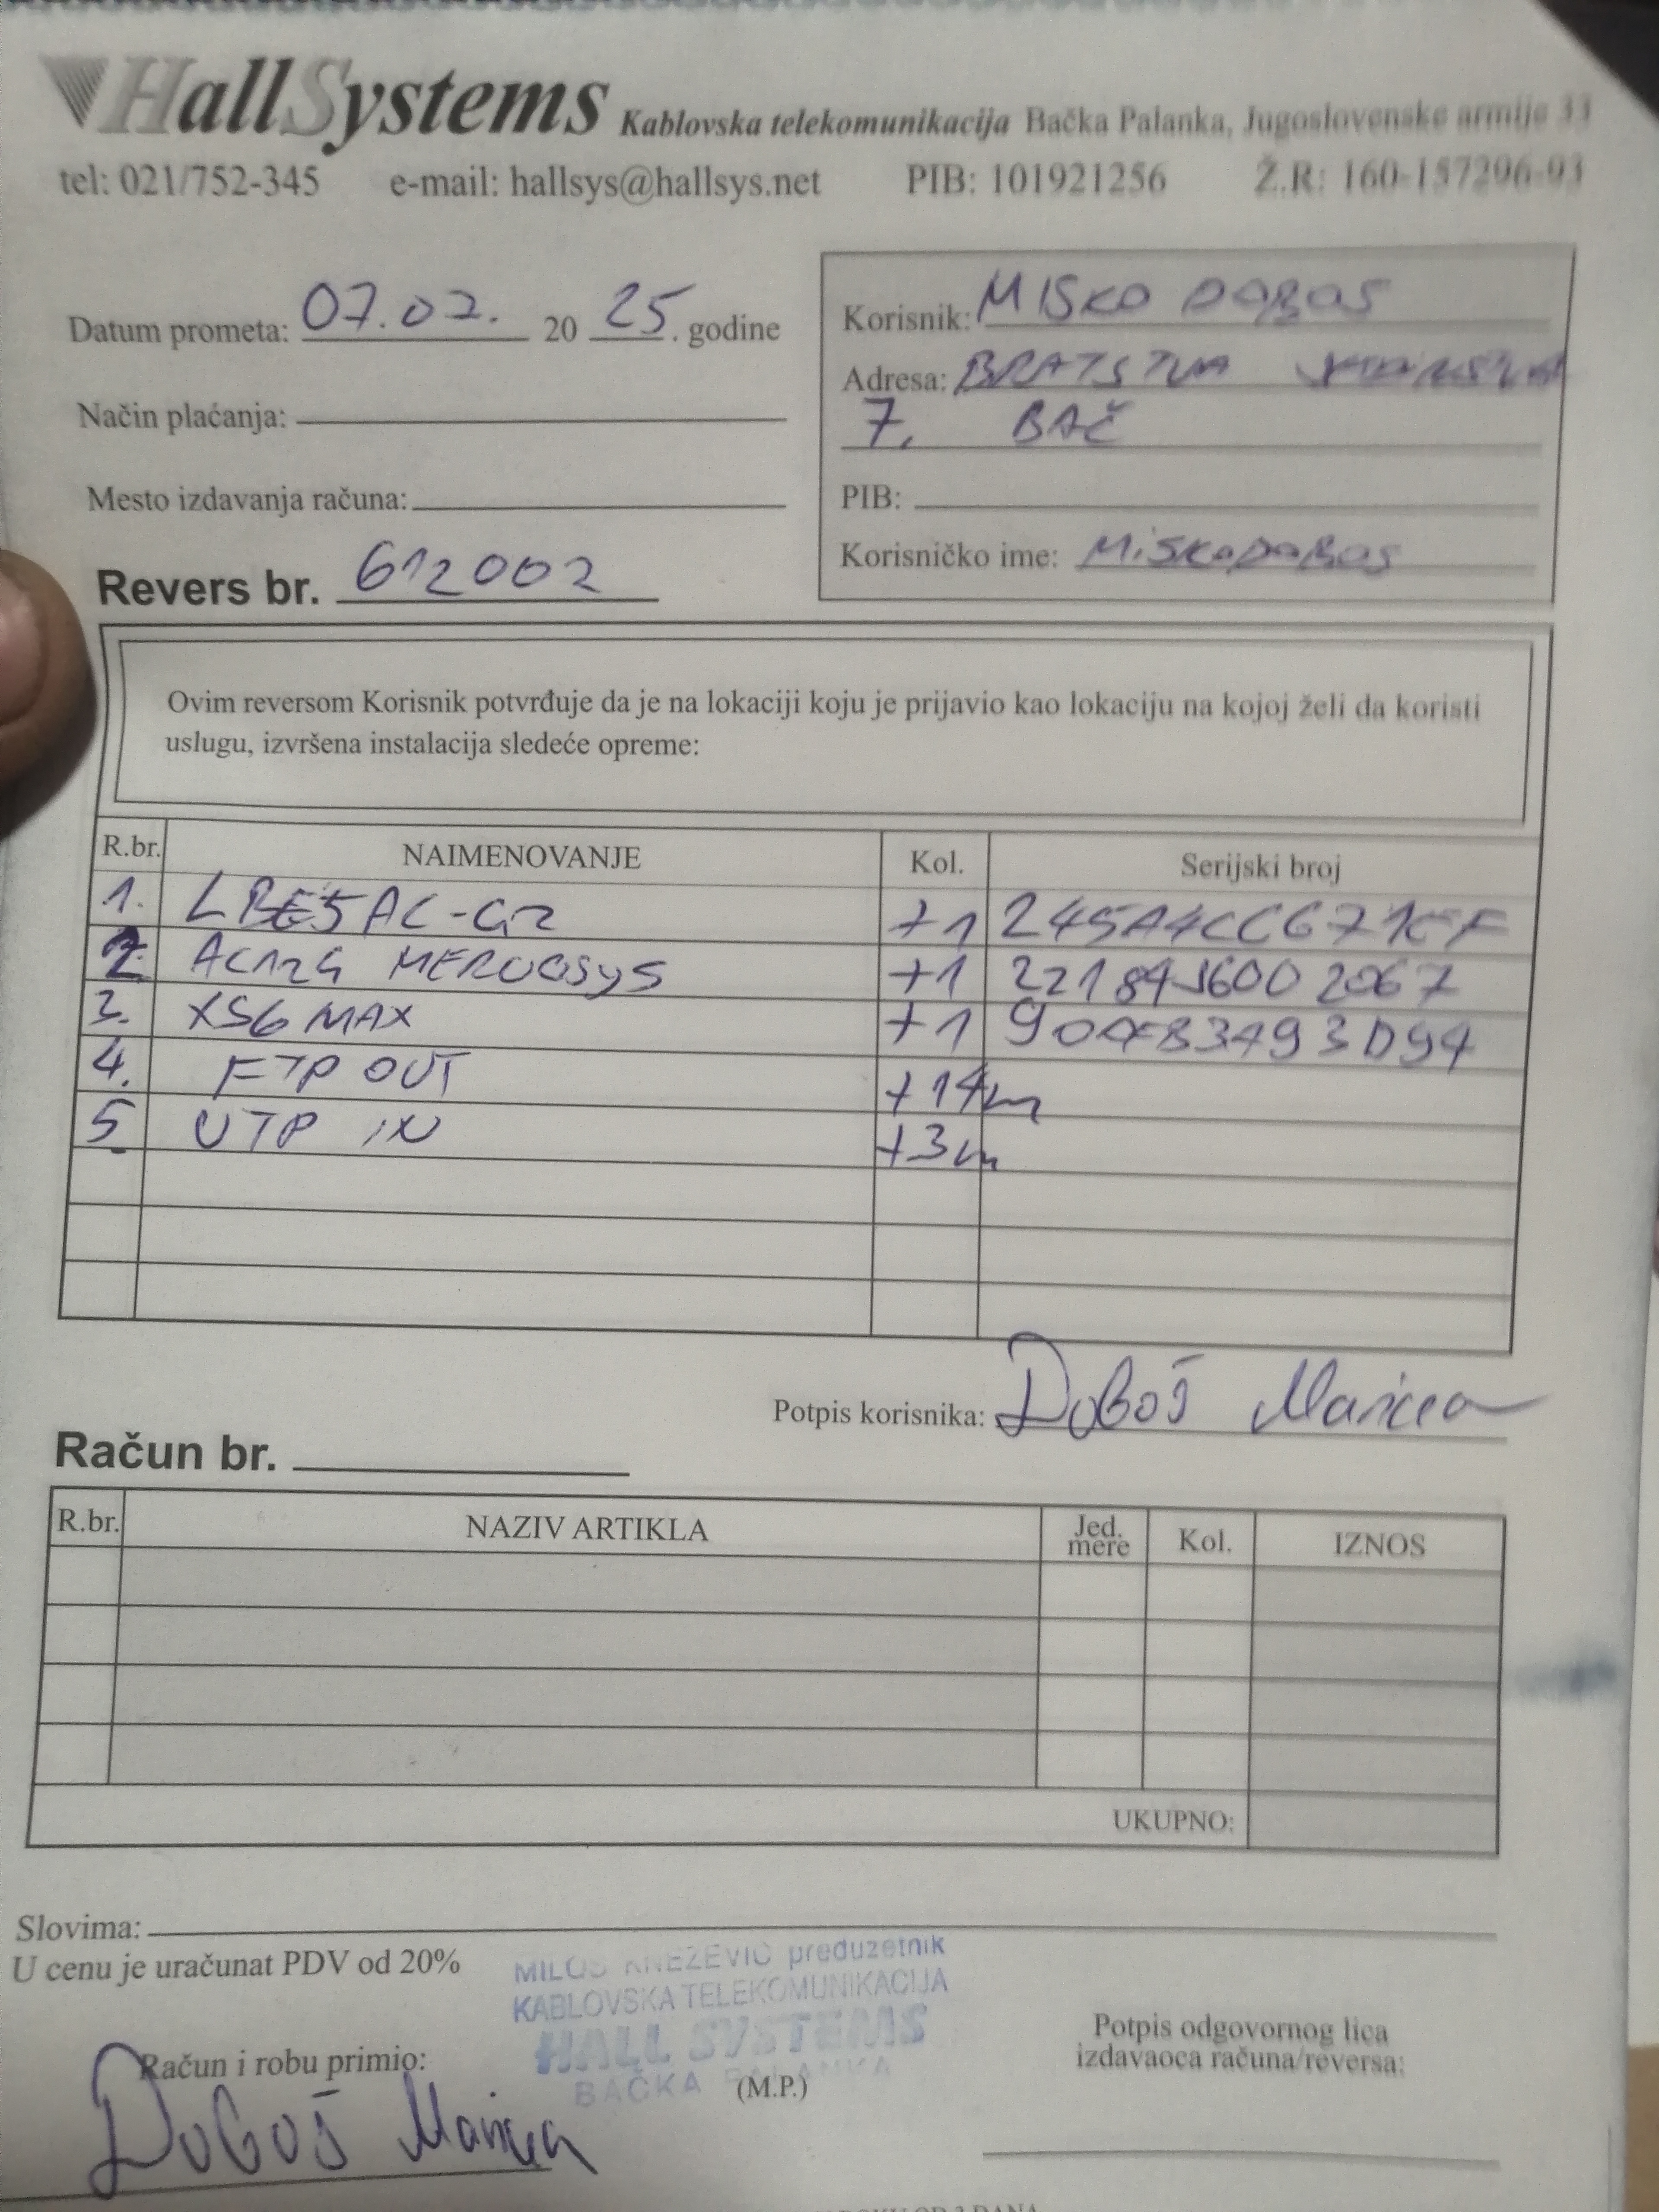 HallSystems Kablovska telekomunikacija Bačka Palanka, Jugoslovenske armije 33
tel: 021/752-345 e-mail: hallsys@hallsys.net PIB: 101921256 Ž.R: 160-157296-93
Datum prometa: 07.02. 20 25. godine
Korisnik: MISKO DOBOS
Adresa: BRATSTVA
7. BAČ
Način plaćanja:
Mesto izdavanja računa:
PIB:
Korisničko ime: MISKODOBOS
Revers br. 612002
Ovim reversom Korisnik potvrđuje da je na lokaciji koju je prijavio kao lokaciju na kojoj želi da koristi
uslugu, izvršena instalacija sledeće opreme:
R.br. NAIMENOVANJE Kol. Serijski broj
1. LBE5AC-G2 +1
2. AC12G MERCUSYS +1
3. XS6 MAX +1
4. FTP OUT +14m
5 UTP IN +3m
Potpis korisnika: Doboš Marica
Račun br.
R.br. NAZIV ARTIKLA Jed. mere Kol. IZNOS
UKUPNO:
Slovima:
U cenu je uračunat PDV od 20%
MILOŠ KNEŽEVIĆ preduzetnik
KABLOVSKA TELEKOMUNIKACIJA
HALL SYSTEMS
BAČKA PALANKA
Račun i robu primio:
(M.P.)
Potpis odgovornog lica
izdavaoca računa/reversa:
Doboš Marica